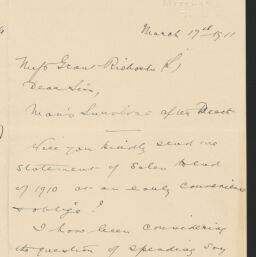 March 17th 1911
Messrs Grant Richards
Dear Sirs,
Man's Survival after Death
Will you kindly send me
statement of Sales to end
of 1910 at an early convenience
& oblige?
I have been considering
the question of spending say